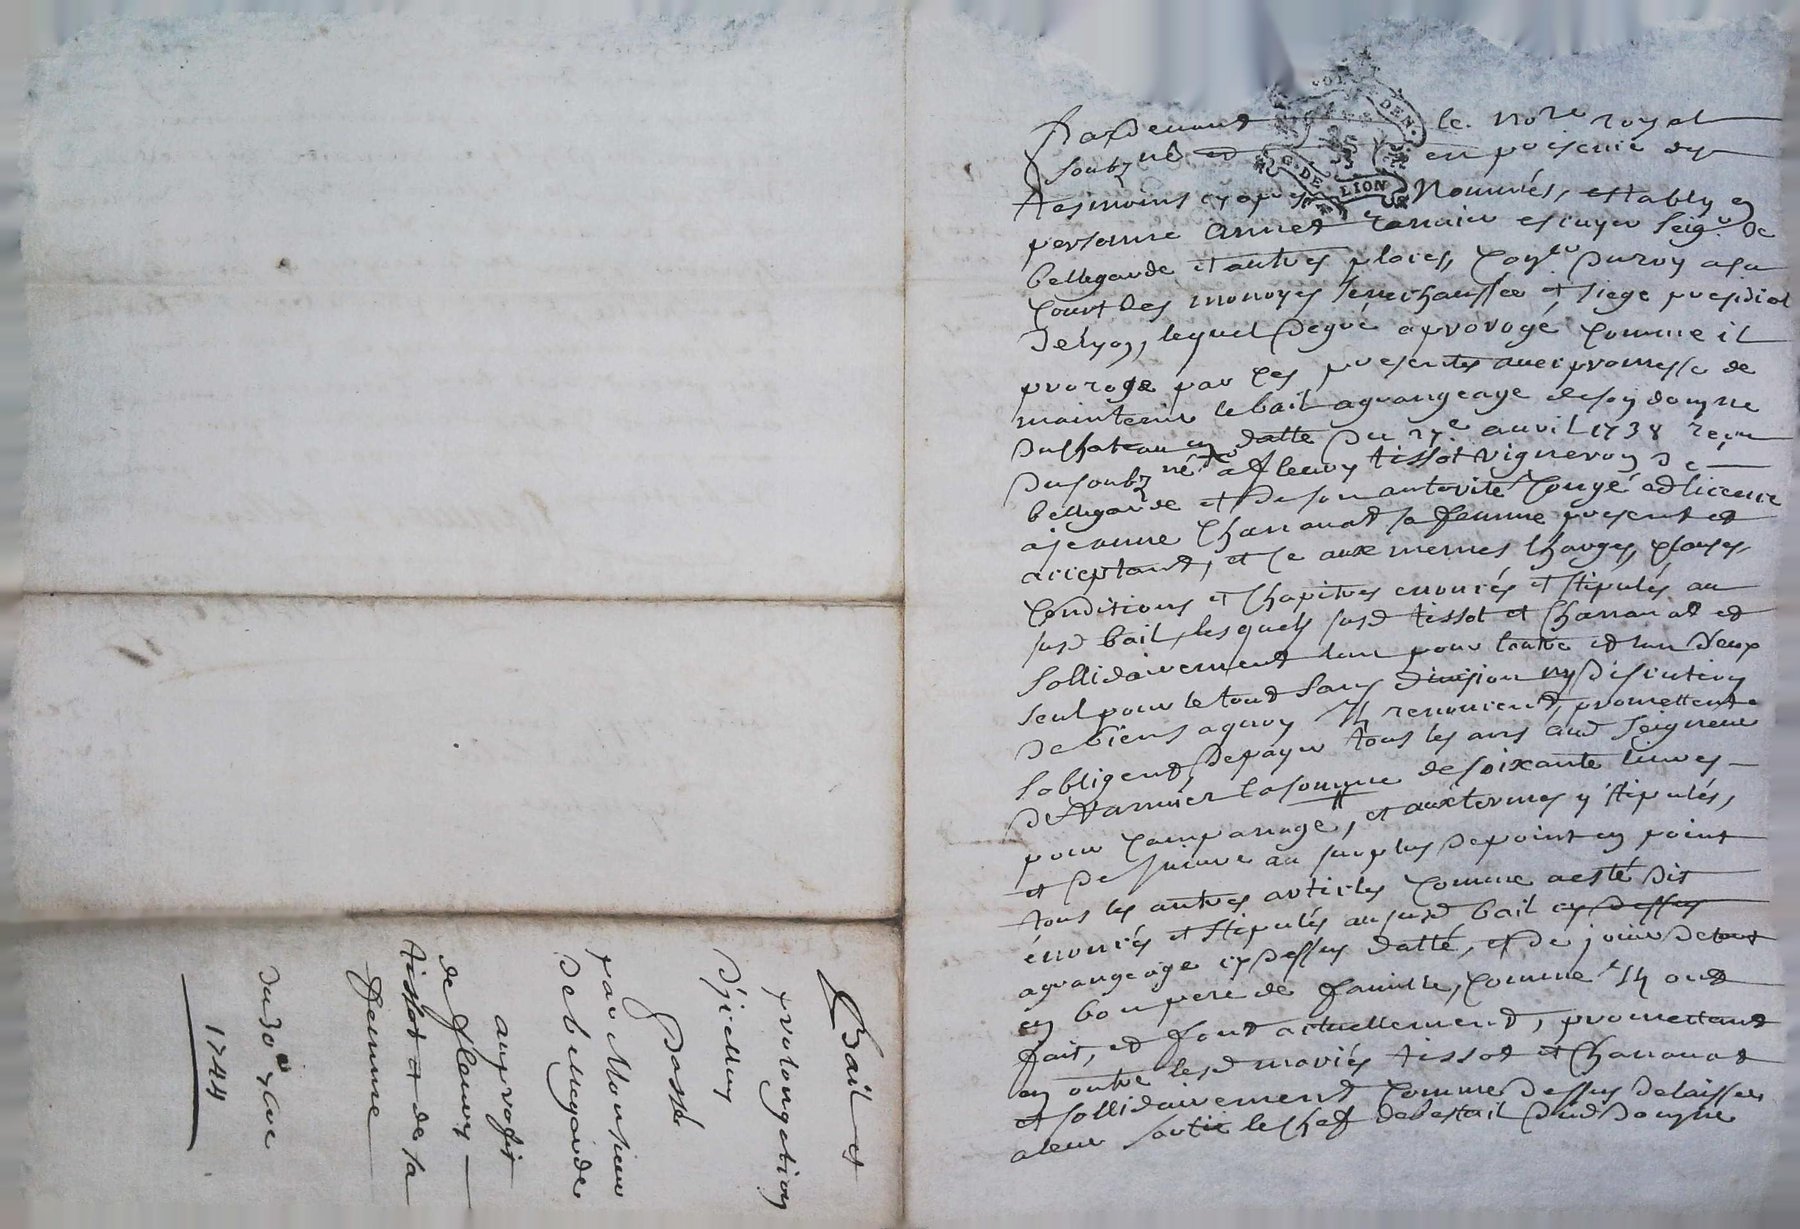 Bail et
prolongation
d'jcelluy
passé
par Monsieur
de bellegarde
au profit
de fleury
tissot et de sa
femme
du 30e
1744
DEN.
G. DE LION
Pardevant le nore royal
soubzné et en presence des
tesmoins cy apres Nommés, estably en
personne annet ranvier escuyer seigr de
bellegarde et autres places, du roy a sa
Court des monoyes senechaussée et siege presidial
de lyon, lequel de gré a prorogé comme il
proroge par ces presentes avec promesse de
maintenir le bail a grangeage de son domyne
du chateau en datte du 27e avril 1738 reçu
du soubzné a fleury tissot vigneron de
bellegarde et de son autorité congé et licence
a jeanne Charavat sa femme present et
acceptant, et ce aux memes charges, clauses,
conditions et chapitres enoncés et stipulés au
susd bail, lesquels susd tissot et Charavat et
sollidairement lun pour lautre et lun deux
seul pour le tout sans division ny discution
de biens a quoy ils renoncent, promettent
sobligent, de payer tous les ans aud seigneur
de la somme de soixante livres
pour campanage, et aux termes y stipulés,
et de suivre au surplus de point en point
tous les autres articles comme a esté dit
énoncés et stipulés au susd bail cy dessus
a grangeage cy dessus datté, et de jouir de tout
en bon pere de famille, comme ils ont
fait, et font actuellement, promettant
en outre lesd mariés tissot et Charavat
et sollidairement comme dessus delaisser
a leur sortie le chef de bestail dud domyne